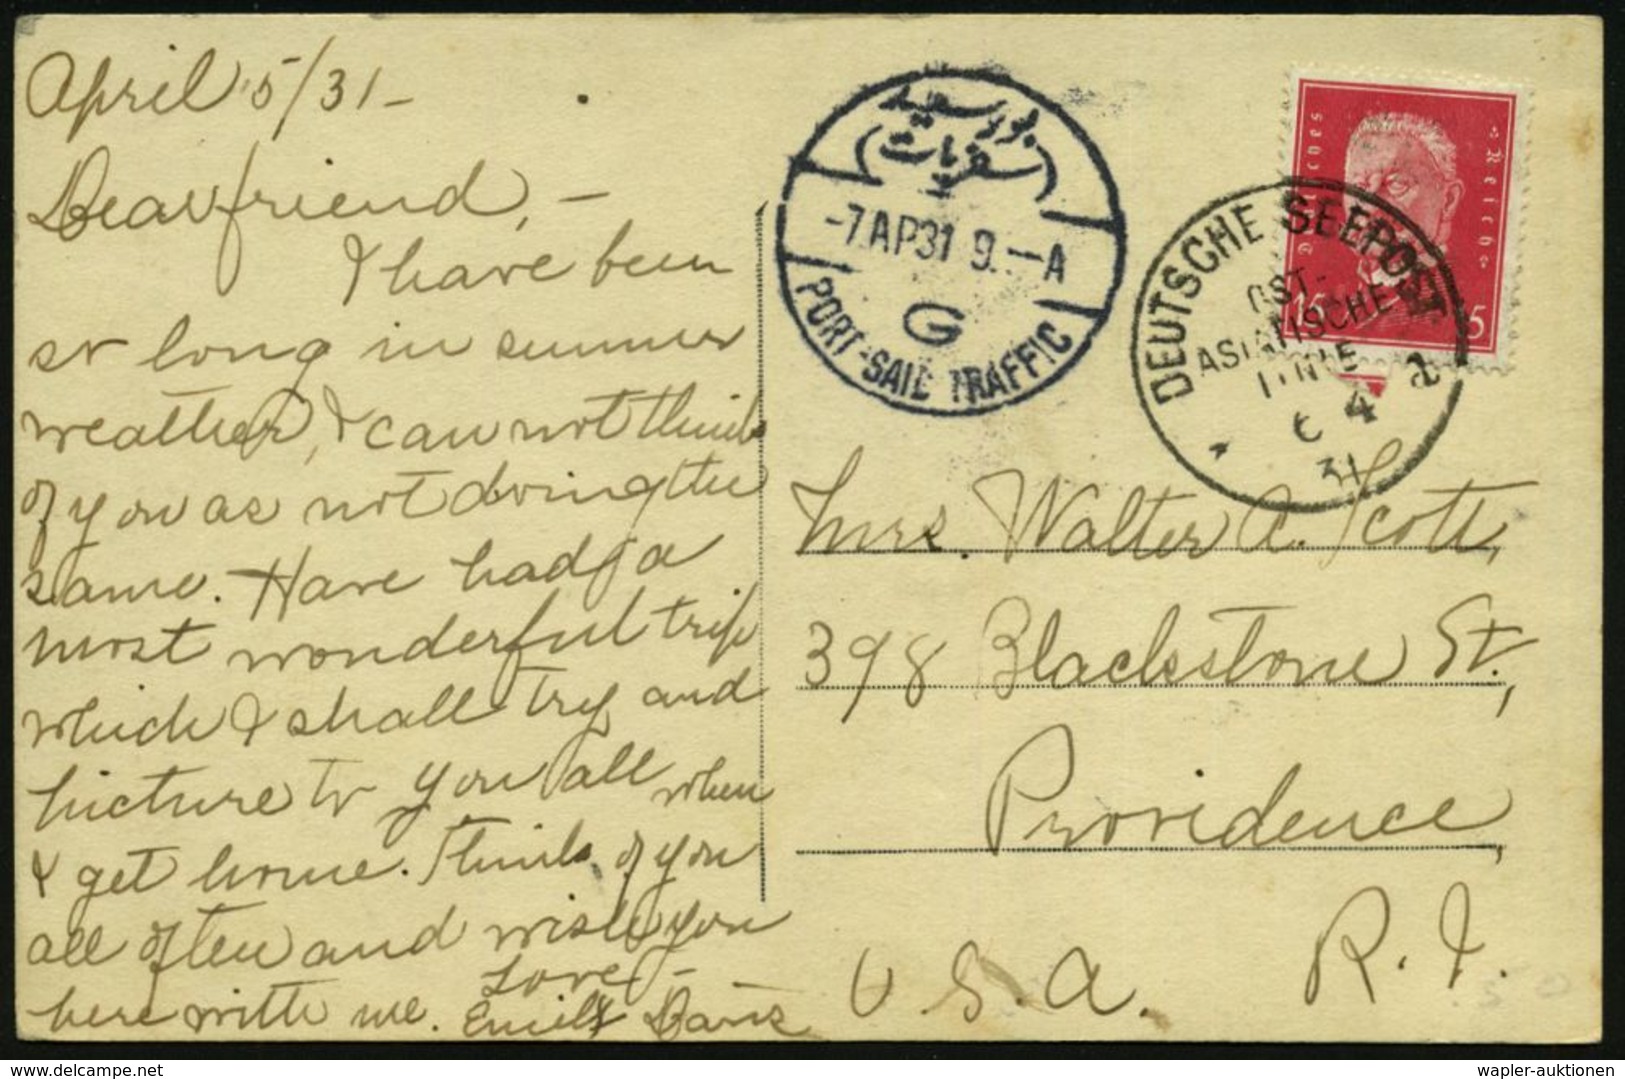 April 5/31 –
Dear friend, –
I have been
so long in summer
weather, I can not think
of you as not doing the
same. Have had a
most wonderful trip
which I shall try and
picture to you all when
I get home. Think of you
all often and wish you
here with me. Love –
Davis
بور سعيد
(سفريات)
-7 AP 31 9.—A
G
PORT-SAID TRAFFIC
Deutsches Reich
15 15
DEUTSCHE SEEPOST
OST-
ASIATISCHE
LINIE
a
6 4
31
Mrs. Walter A. Scott,
398 Blackstone St.,
Providence,
R. I.
U. S. A.
delcampe.net
wapler-auktionen